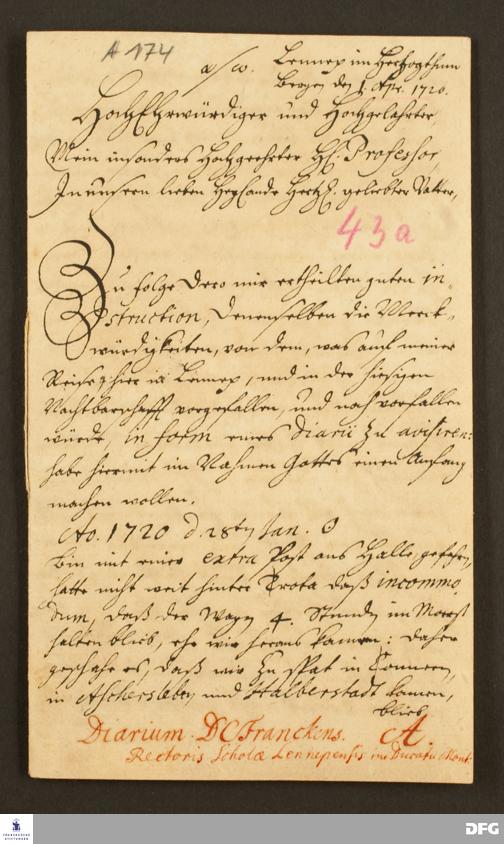 A 174
Lennep im Hertzogthum
Bergen den 1. Apr. 1720.
HochEhrwürdiger und Hochgelahrter
Mein insonders Hochgeehrter H. Professor,
In unsern lieben Heylande Hertzl. geliebter Vatter,
43a
Zu folge Dero mir ertheilten guten in-
struction, Denenselben die Merck-
würdigkeiten, von dem, was auf meiner
Reise hier in Lennep, und in der hiesigen
Nachbarschafft vorgefallen, und noch vorfallen
würde, in form eines Diarii zu avisiren:
habe hiermit im Nahmen Gottes einen Anfang
machen wollen.
Ao. 1720 d. 28ten Jan.
Bin mit einer extra Post aus Halle gefahren,
hatte nicht weit hinter Trota daß incommo-
dum, daß der Wagen 4. Stunden im Morast
halten blieb, ehe wir heraus kamen: Daher
geschahe es, daß wir zu spät in Connern,
in Aschersleben und Halberstadt kamen,
blieb
Diarium D C Franckens. A
Rectoris Scholæ Lennepensis im Ducatu Mont.
FRANCKESCHE STIFTUNGEN
DFG